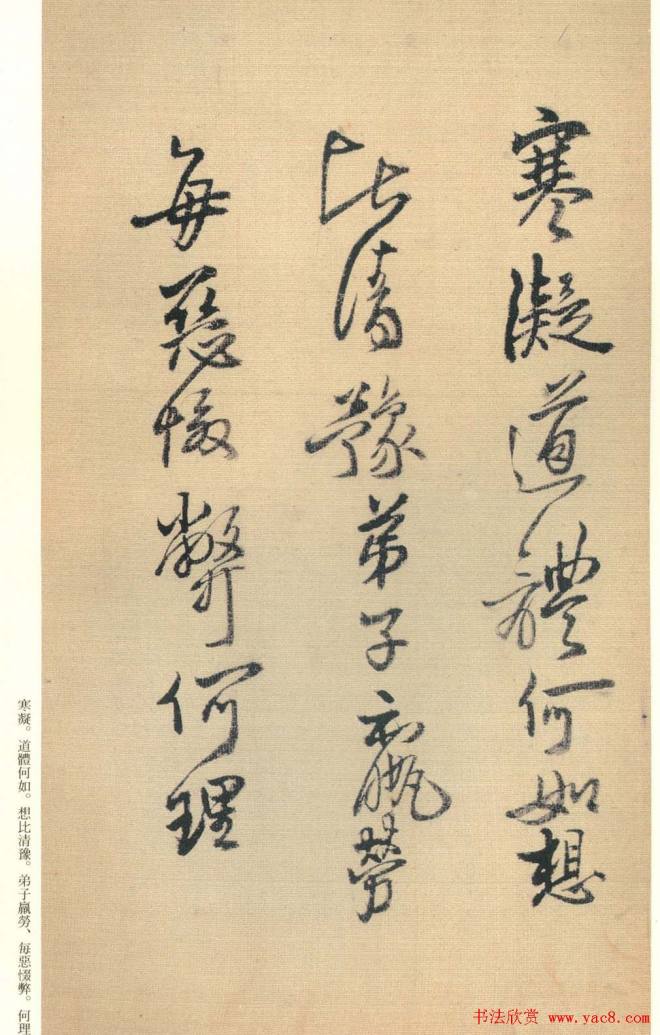 寒凝道體何如想
比清豫弟子羸勞
每惡惙弊何理
寒凝。道體何如。想比清豫。弟子羸勞、每惡惙弊。何理
书法欣赏 www.yac8.com